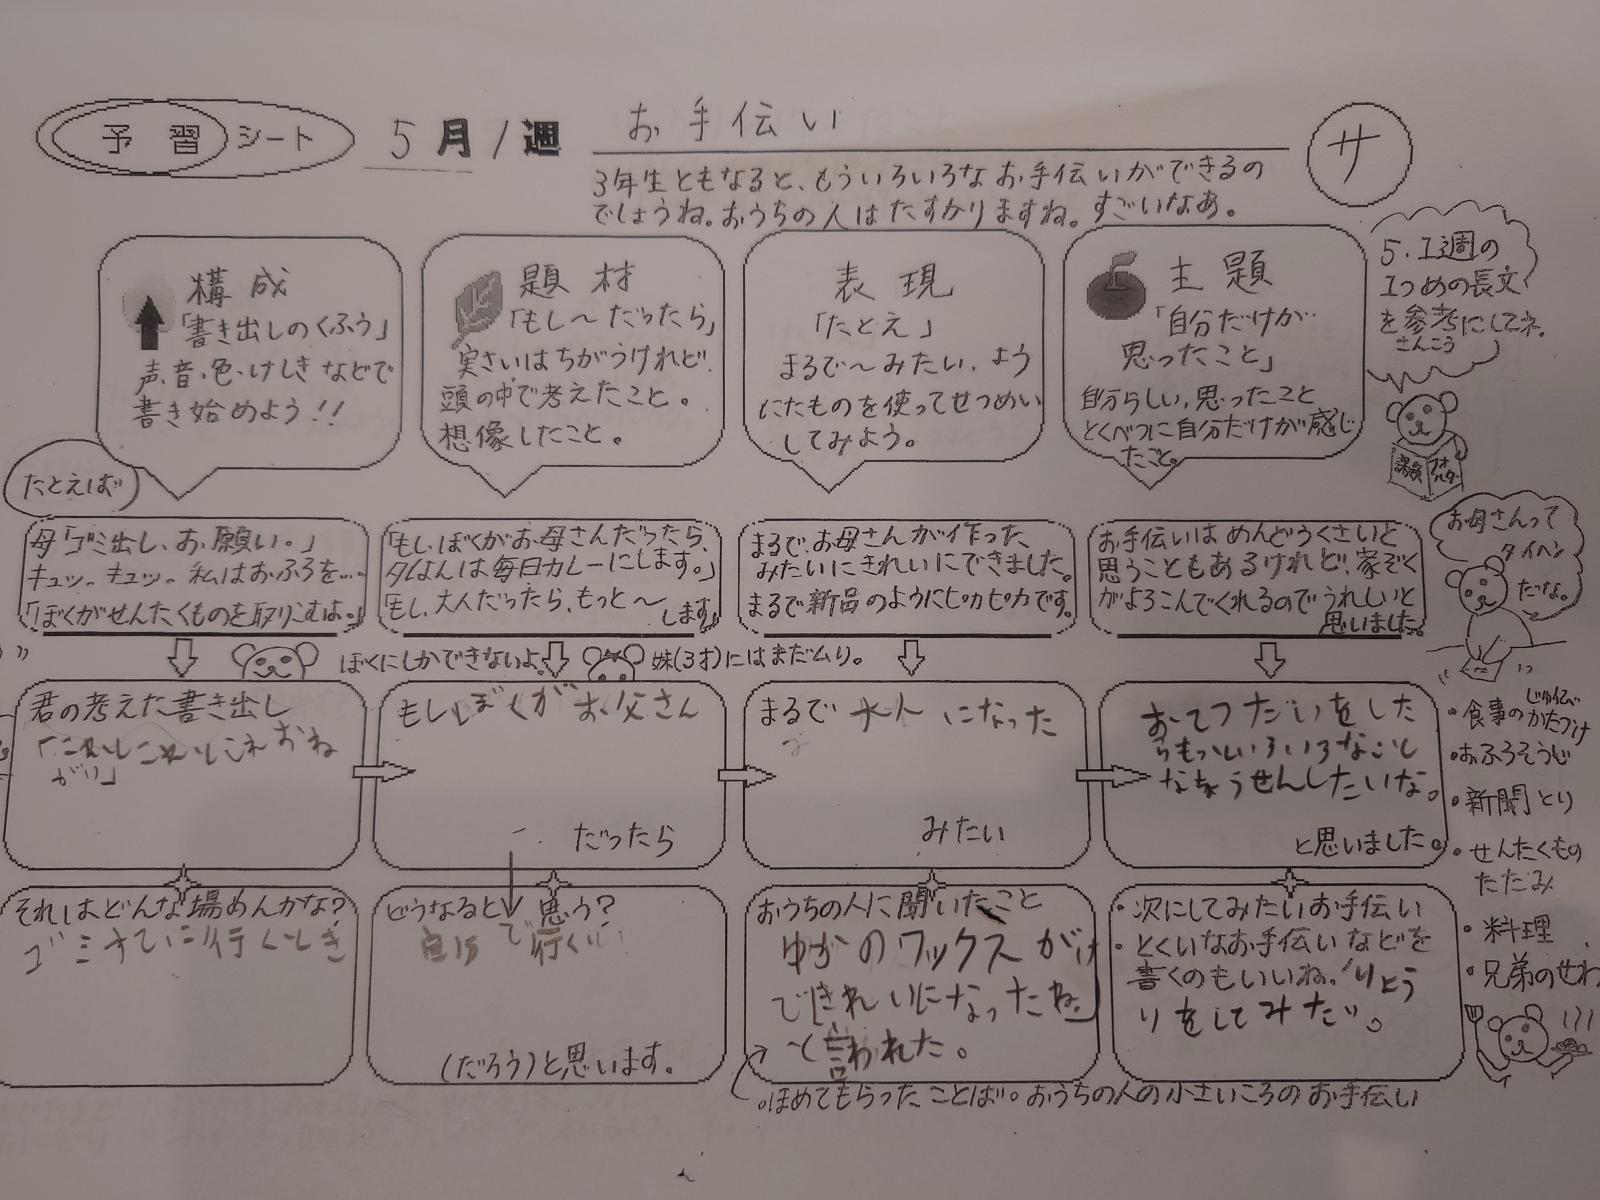 予習シート
5月1週
お手伝い
サ
3年生ともなると、もういろいろなお手伝いができるの
でしょうね。おうちの人はたすかりますね。すごいなあ。
構成
「書き出しのくふう」
声、音、色、けしきなどで
書き始めよう!!
題材
「もし〜だったら」
実さいはちがうけれど、
頭の中で考えたこと。
想像したこと。
表現
「たとえ」
まるで〜みたい、よう
にたものを使ってせつめい
してみよう。
主題
「自分だけが
思ったこと」
自分らしい、思ったこと
とくべつに自分だけが感じ
たこと。
5.1週の
1つめの長文
を参考にしてネ。
さんこう
課題フォルダー
たとえば
母「ゴミ出し、お願い。」
キュッ。キュッ。私はおふろを……
「ぼくがせんたくものを取りこむよ。」
「もし、ぼくがお母さんだったら、
夕はんは毎日カレーにします。」
「もし、大人だったら、もっと〜
します」
まるで、お母さんが作った
みたいにきれいにできました。
まるで新品のようにピカピカです。
お手伝いはめんどうくさいと
思うこともあるけれど、家ぞく
がよろこんでくれるのでうれしいと
思いました。
お母さんって
タイヘン
だな。
ぼくにしかできないよ
妹(3才)にはまだムリ。
君の考えた書き出し
もしぼくがお父さん
だったら
まるで 大人 になった
みたい
おてつだいをした
らもっといろいろなこと
なちょうせんしたいな。
と思いました。
・食事のじゅんびかたづけ
・おふろそうじ
・新聞とり
・せんたくもの
たたみ
・料理
・兄弟のせわ
それはどんな場めんかな?
ゴミすてに行くとき
どうなると思う?
で行くし
(だろう)と思います。
おうちの人に聞いたこと
ゆかのワックスがけ
できれいになったね」
と言われた。
・ほめてもらったことば。おうちの人の小さいころのお手伝い
・次にしてみたいお手伝い
・とくいなお手伝いなどを
書くのもいいね。りょう
りをしてみたい。